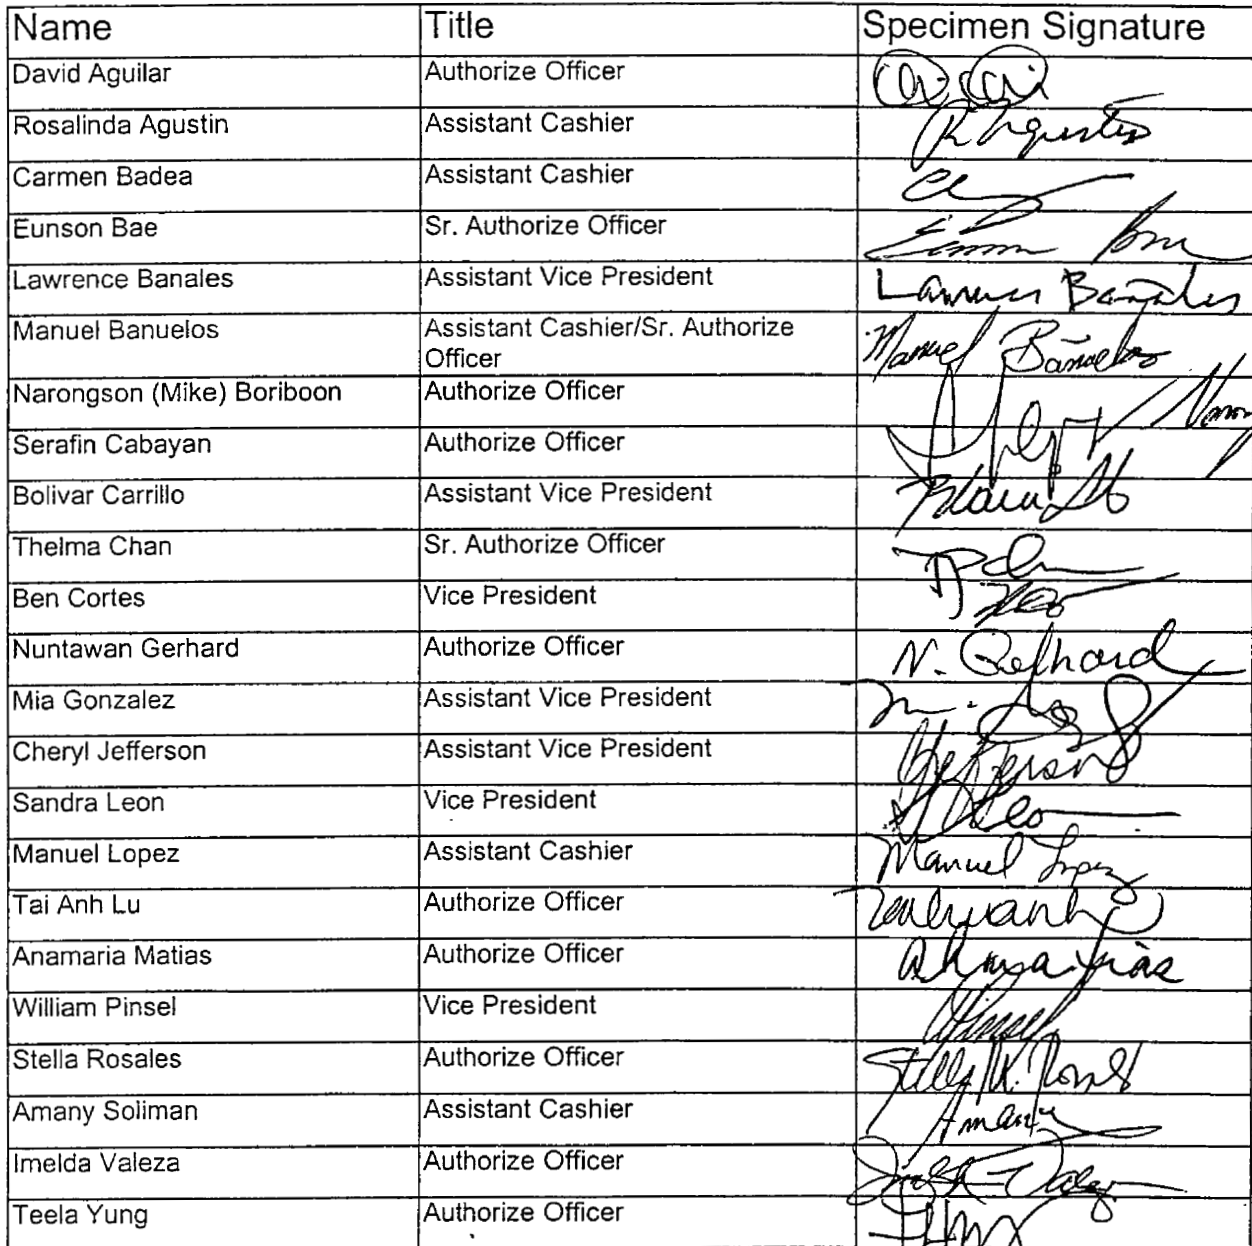 Name Title Specimen Signature
David Aguilar Authorize Officer
Rosalinda Agustin Assistant Cashier R Agustin
Carmen Badea Assistant Cashier
Eunson Bae Sr. Authorize Officer
Lawrence Banales Assistant Vice President Lawrence Bañales
Manuel Banuelos Assistant Cashier/Sr. Authorize
Officer Manuel Bañuelos
Narongson (Mike) Boriboon Authorize Officer
Serafin Cabayan Authorize Officer
Bolivar Carrillo Assistant Vice President
Thelma Chan Sr. Authorize Officer
Ben Cortes Vice President
Nuntawan Gerhard Authorize Officer N. Gerhard
Mia Gonzalez Assistant Vice President
Cheryl Jefferson Assistant Vice President Jefferson
Sandra Leon Vice President Leon
Manuel Lopez Assistant Cashier Manuel Lopez
Tai Anh Lu Authorize Officer
Anamaria Matias Authorize Officer
William Pinsel Vice President
Stella Rosales Authorize Officer Stella
Amany Soliman Assistant Cashier Amany
Imelda Valeza Authorize Officer
Teela Yung Authorize Officer